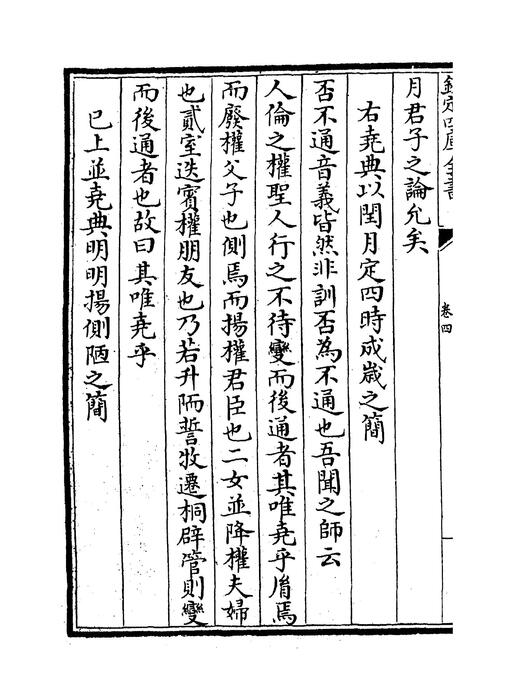 欽定四庫全書
卷四
月君子之論允矣
右堯典以閏月定四時成嵗之簡
否不通音義皆然非訓否為不通也吾聞之師云
人倫之權聖人行之不待變而後通者其唯堯乎胤焉
而廢權父子也側焉而揚權君臣也二女並降權夫婦
也貳室迭賓權朋友也乃若升陑誓牧遷桐辟管則變
而後通者也故曰其唯堯乎
已上並堯典明明揚側陋之簡